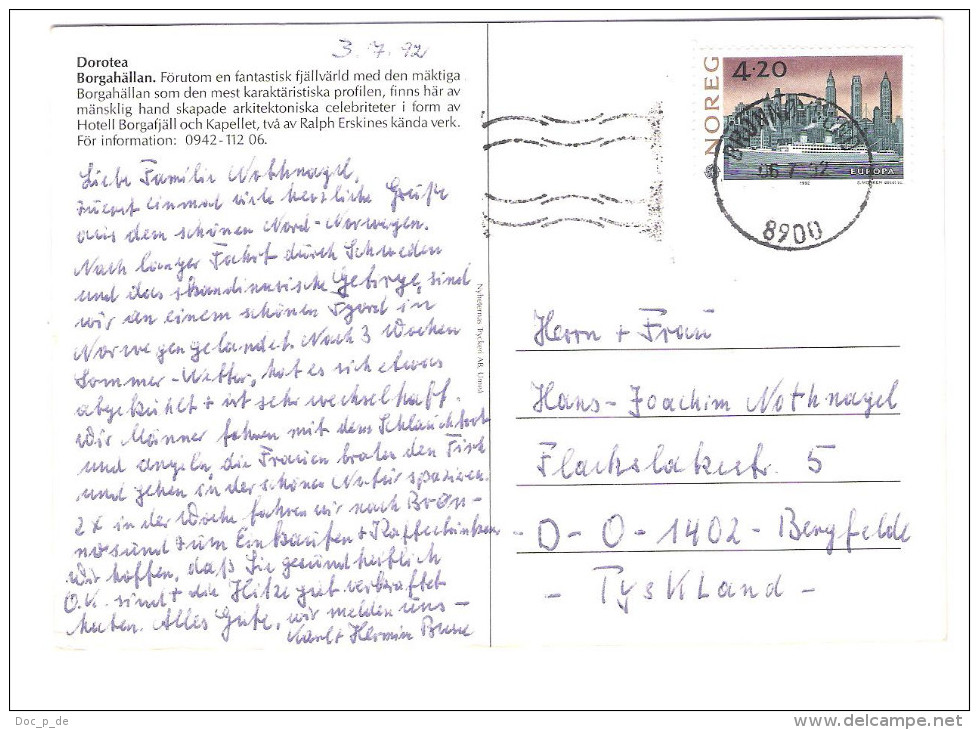 3.7.92
Dorotea
Borgahällan. Förutom en fantastisk fjällvärld med den mäktiga
Borgahällan som den mest karaktäristiska profilen, finns här av
mänsklig hand skapade arkitektoniska celebriteter i form av
Hotell Borgafjäll och Kapellet, två av Ralph Erskines kända verk.
För information: 0942-112 06.
Liebe Familie Nothnagel,
zuerst einmal viele herzliche Grüße
aus dem schönen Nord-Norwegen.
Nach langer Fahrt durch Schweden
und das skandinavische Gebirge, sind
wir an einem schönen Fjord in
Norwegen gelandet. Nach 3 Wochen
Sommer-Wetter, hat es sich etwas
abgekühlt + ist sehr wechselhaft.
Wir Männer fahren mit dem Schlauchboot
und angeln, die Frauen braten den Fisch
und gehen in der schönen Natur spazieren.
2 x in der Woche fahren wir nach Brön-
nösund zum Einkaufen + Kaffeetrinken
Wir hoffen, daß Sie gesundheitlich
O.K. sind + die Hitze gut verkraftet
haben. Alles Gute, wir melden uns -
Karl + Hermin
Nyheternas Tryckeri AB, Umeå
NOREG
4.20
EUROPA
1992
06 7 92
8900
Herrn + Frau
Hans-Joachim Nothnagel
5
- D - O - 1402 - Bergfelde
- Tyskland -
Doc_p_de
delcampe.net